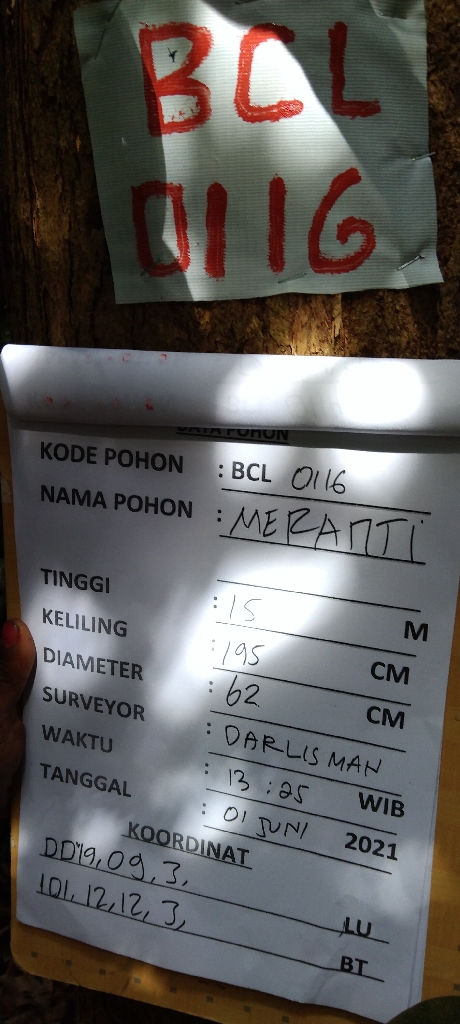 BCL
0116
DATA POHON
KODE POHON : BCL 0116
NAMA POHON : MERANTI
TINGGI : 15 M
KELILING : 195 CM
DIAMETER : 62 CM
SURVEYOR : DARLISMAN
WAKTU : 13:25 WIB
TANGGAL : 01 JUNI 2021
KOORDINAT
09, 3, LU
101, 12, 12, 3, BT